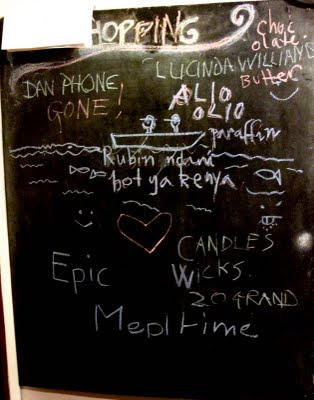 HOPPING
Choc
olate.
LUCINDA WILLIAMS
Butter
DAN PHONE
GONE!
ALIO
OLIO
paraffin
Rubin ndani
bot ya kenya
CANDLES
WICKS.
20 GRAND
Epic
Mealtime